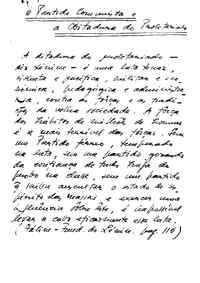 o Partido Comunista e
a Ditadura do Proletariado
A ditadura do proletariado —
diz Lénine — é uma luta tenaz,
violenta e pacífica, militar e eco-
nómica, pedagógica e administra-
tiva, contra as forças e as tradi-
ções da velha sociedade. A força
dos hábitos de milhões de homens
é a mais terrível das forças. Sem
um Partido férreo, temperado
na luta, sem um partido gozando
da confiança de tudo que há de
honesto na classe, sem um partido
q saiba auscultar o estado de es-
pírito das massas e exercer uma
influência sobre êste, é impossível
levar a cabo eficazmente esta luta.
(Stáline - Fund. do Lénine. pag 116)